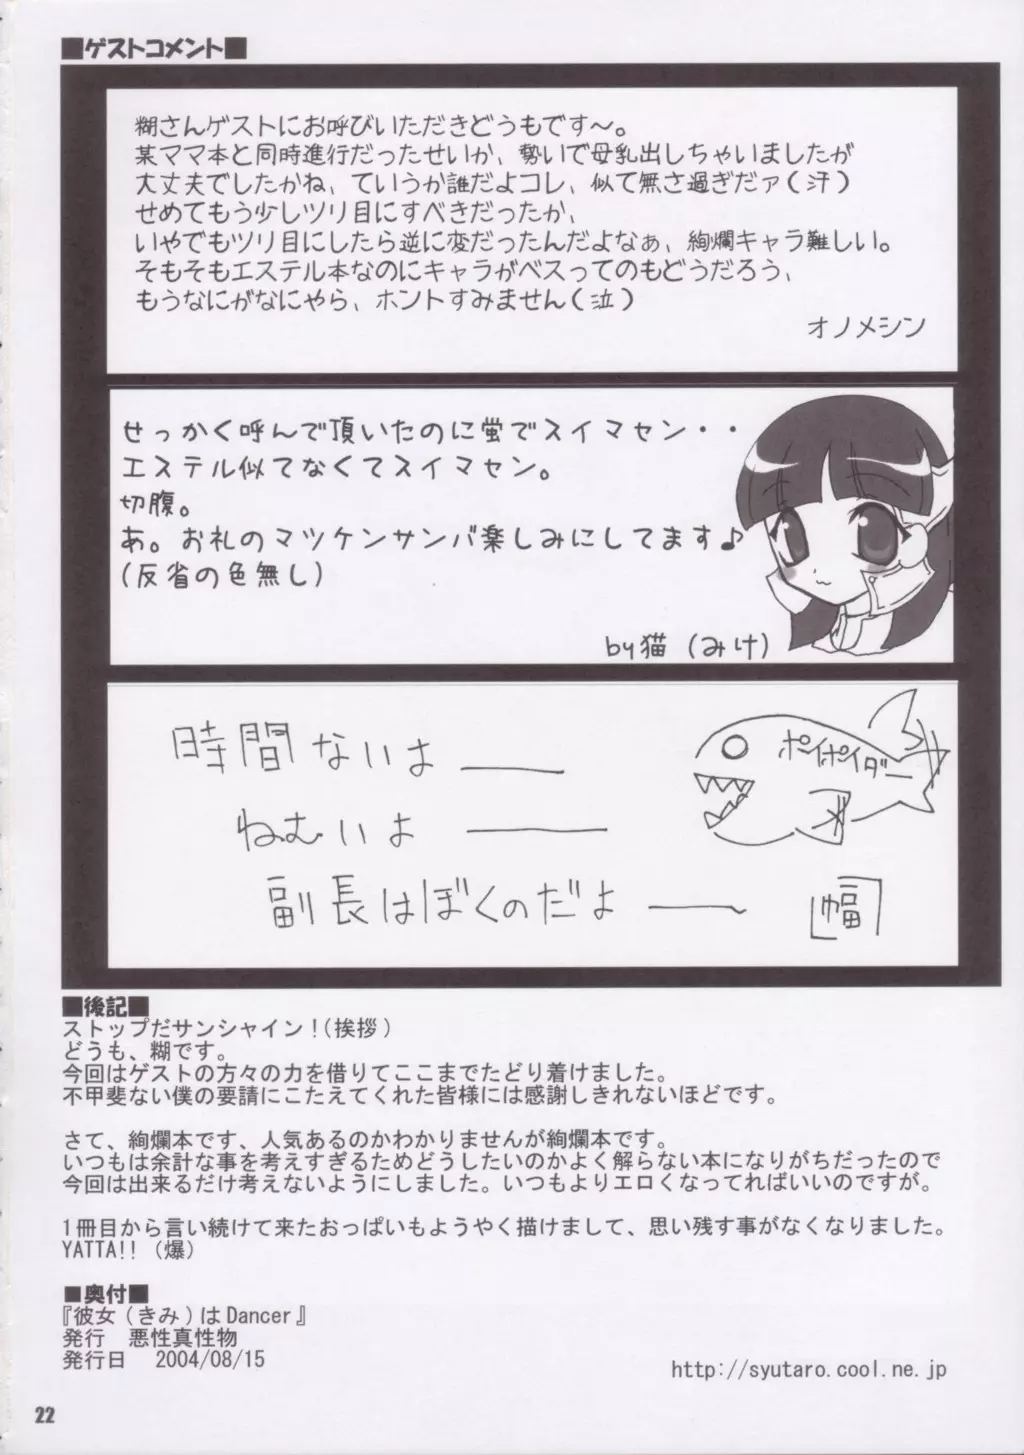 ■ゲストコメント■
糊さんゲストにお呼びいただきどうもです～。
某ママ本と同時進行だったせいか、勢いで母乳出しちゃいましたが
大丈夫でしたかね、ていうか誰だよコレ、似て無さ過ぎだァ(汗)
せめてもう少しツリ目にすべきだったか、
いやでもツリ目にしたら逆に変だったんだよなぁ、絢爛キャラ難しい。
そもそもエステル本なのにキャラがベスってのもどうだろう、
もうなにがなにやら、ホントすみません(泣)
オノメシン
せっかく呼んで頂いたのに蛍でスイマセン・・
エステル似てなくてスイマセン。
切腹。
あ。お礼のマツケンサンバ楽しみにしてます♪
(反省の色無し)
by猫 (みけ)
時間ないよ――
ねむいよ ――
副長はぼくのだよ ――
ポイポイダー
「幅」
■後記■
ストップだサンシャイン！(挨拶)
どうも、糊です。
今回はゲストの方々の力を借りてここまでたどり着けました。
不甲斐ない僕の要請にこたえてくれた皆様には感謝しきれないほどです。
さて、絢爛本です、人気あるのかわかりませんが絢爛本です。
いつもは余計な事を考えすぎるためどうしたいのかよく解らない本になりがちだったので
今回は出来るだけ考えないようにしました。いつもよりエロくなってればいいのですが。
1冊目から言い続けて来たおっぱいもようやく描けまして、思い残す事がなくなりました。
YATTA!! (爆)
■奥付■
『彼女(きみ)はDancer』
発行 悪性真性物
発行日 2004/08/15
http://syutaro.cool.ne.jp
22